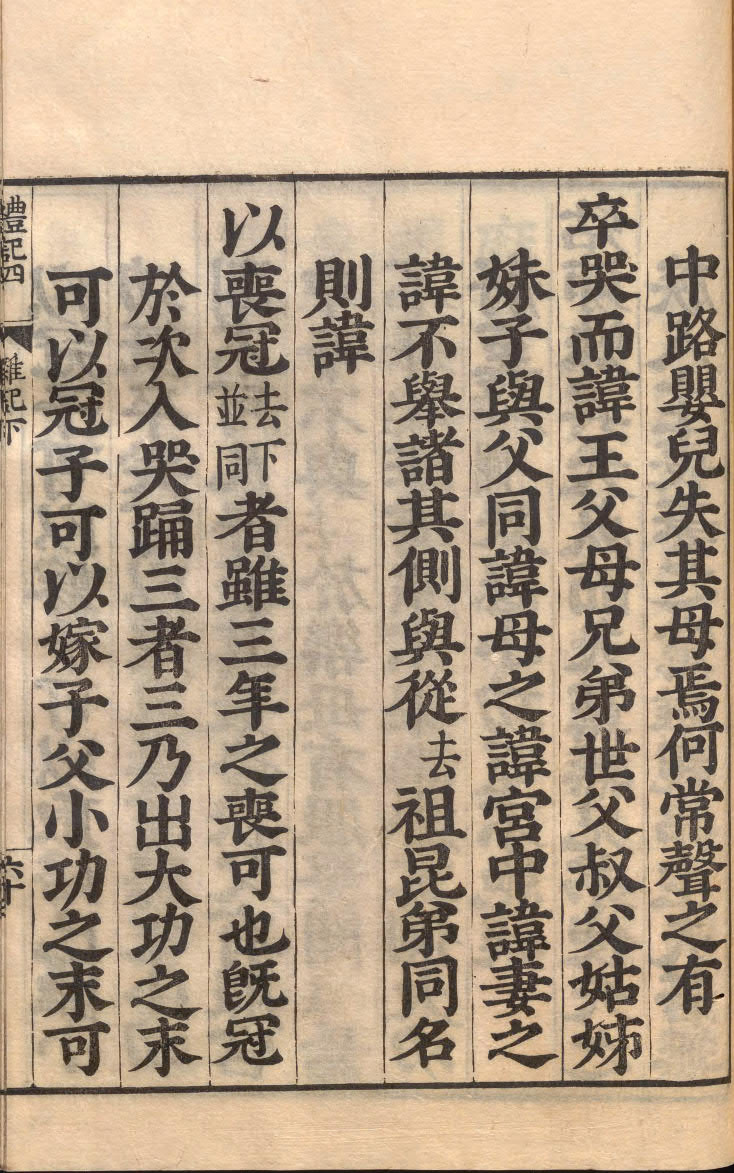 中路嬰兒失其母焉何常聲之有
卒哭而諱王父母兄弟世父叔父姑姊
妹子與父同諱母之諱宮中諱妻之
諱不舉諸其側與從去祖昆弟同名
則諱
以喪冠去下並同者雖三年之喪可也既冠
於次入哭踊三者三乃出大功之末
可以冠子可以嫁子父小功之末可
禮記四
雜記下